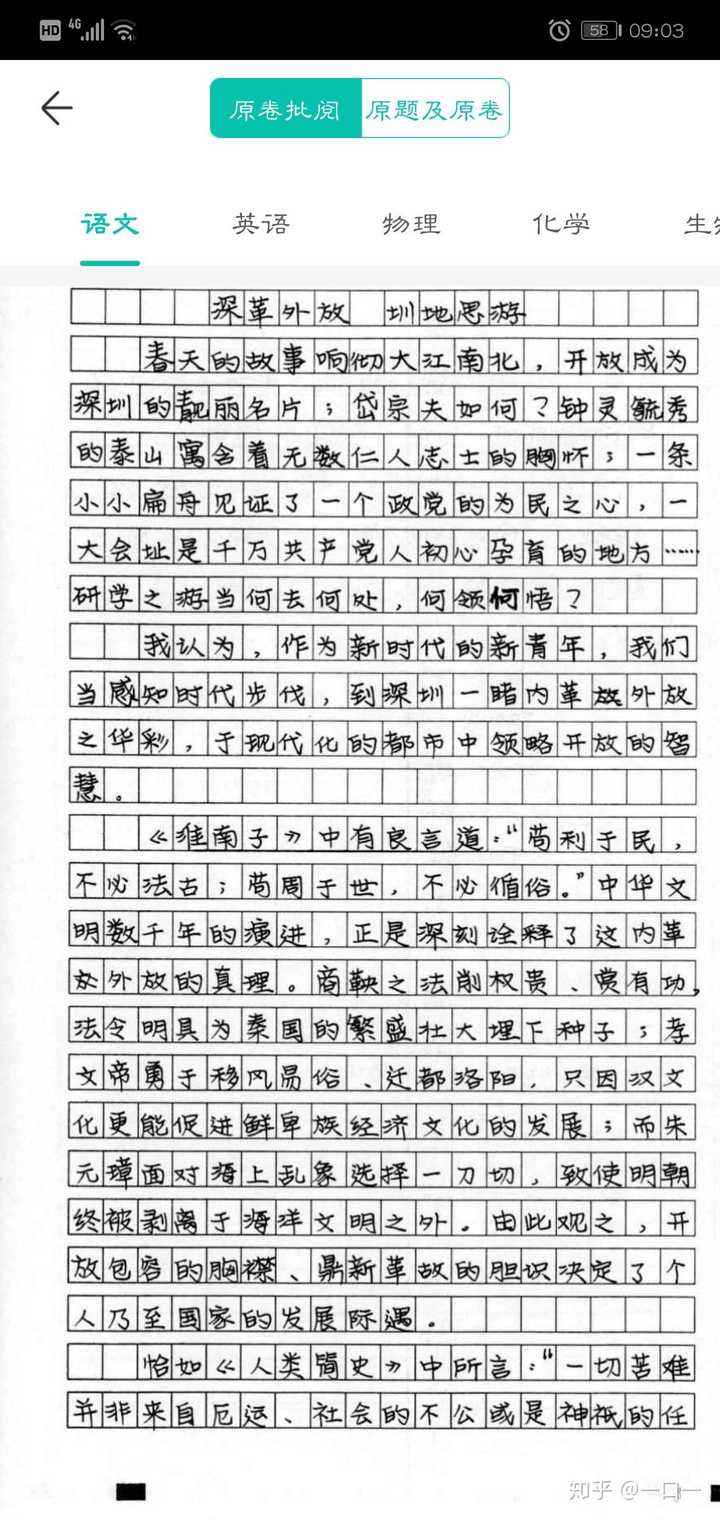 HD 4G 58 09:03
原卷批阅 原题及原卷
语文 英语 物理 化学 生物
深革外放 圳地思游
春天的故事响彻大江南北，开放成为
深圳的靓丽名片；岱宗夫如何？钟灵毓秀
的泰山寓含着无数仁人志士的胸怀；一条
小小扁舟见证了一个政党的为民之心，一
大会址是千万共产党人初心孕育的地方……
研学之游当何去何处，何领何悟？
我认为，作为新时代的新青年，我们
当感知时代步伐，到深圳一睹内革外放
之华彩，于现代化的都市中领略开放的智
慧。
《淮南子》中有良言道：“苟利于民，
不必法古；苟周于世，不必循俗。”中华文
明数千年的演进，正是深刻诠释了这内革
外放的真理。商鞅之法削权贵、赏有功，
法令明具为秦国的繁盛壮大埋下种子；孝
文帝勇于移风易俗、迁都洛阳，只因汉文
化更能促进鲜卑族经济文化的发展；而朱
元璋面对海上乱象选择一刀切，致使明朝
终被剥离于海洋文明之外。由此观之，开
放包容的胸襟、鼎新革故的胆识决定了个
人乃至国家的发展际遇。
恰如《人类简史》中所言：“一切苦难
并非来自厄运、社会的不公或是神祇的任
知乎 @一口一